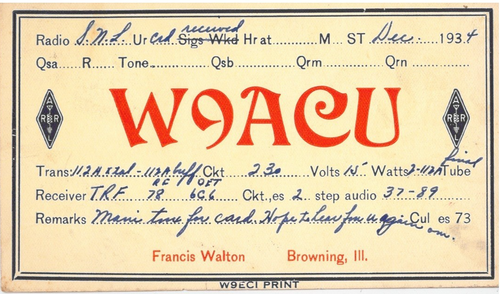 received
Radio S.N.L. Ur crd Sigs Wkd Hr at M ST Dec. 1934
Qsa R Tone Qsb Qrm Qrn
ARRL W9ACU ARRL
final
Trans: 112A Xtal - 112A buff Ckt 230 Volts 15 Watts 2-112A Tube
RF DET
Receiver T.R.F. 78 6C6 Ckt., es 2 step audio 37-89
Remarks Mani tnx for card. Hope to hear fm u again om. Cul es 73
Francis Walton Browning, Ill.
W9ECI PRINT